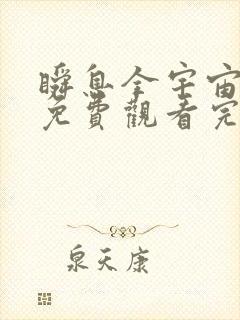 瞬息全宇宙
免費觀看完
泉天康